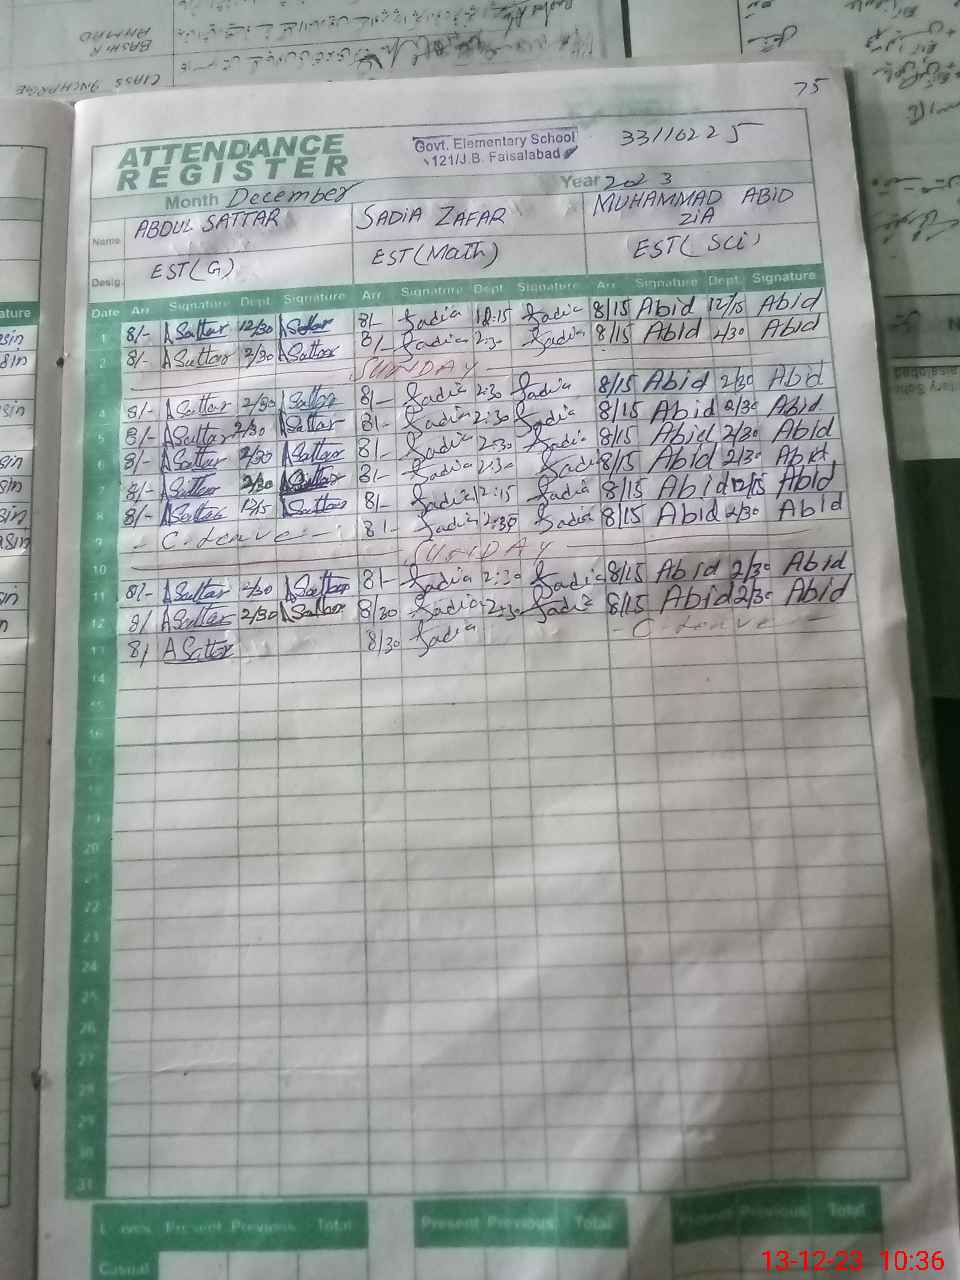 BASHIR
AHMAD
CLASS INCHARGE
75
ATTENDANCE
REGISTER
Govt. Elementary School
121/J.B. Faisalabad
33110225
Month December
Year 2023
Name ABDUL SATTAR SADIA ZAFAR MUHAMMAD ABID ZIA
Desig. EST(G) EST(Math) EST(Sci)
Date Arr Signature Dept. Signature Arr Signature Dept Signature Arr Signature Dept. Signature
1 8/- A Sattar 12/30 A Sattar 8/- Sadia 12:15 Sadia 8/15 Abid 12/15 Abid
2 8/- A Sattar 2/30 A Sattar 8/- Sadia 2:30 Sadia 8/15 Abid 2/30 Abid
SUNDAY
4 8/- A Sattar 2/30 A Sattar 8/- Sadia 2:30 Sadia 8/15 Abid 2/30 Abid
5 8/- A Sattar 2/30 A Sattar 8/- Sadia 2:30 Sadia 8/15 Abid 2/30 Abid
6 8/- A Sattar 2/30 A Sattar 8/- Sadia 2:30 Sadia 8/15 Abid 2/30 Abid
7 8/- A Sattar 2/30 A Sattar 8/- Sadia 2:30 Sadia 8/15 Abid 2/30 Abid
8 8/- A Sattar 12/15 A Sattar 8/- Sadia 12:15 Sadia 8/15 Abid 12/15 Abid
9 - C. Leave - 8/- Sadia 2:30 Sadia 8/15 Abid 2/30 Abid
10 SUNDAY
11 8/- A Sattar 2/30 A Sattar 8/- Sadia 2:30 Sadia 8/15 Abid 2/30 Abid
12 8/ A Sattar 2/30 A Sattar 8/30 Sadia 2:30 Sadia 8/15 Abid 2/30 Abid
13 8/ A Sattar 8/30 Sadia - C. Leave -
14
15
16
17
18
19
20
21
22
23
24
25
26
27
28
29
30
31
Leaves Present Previous Total Present Previous Total Present Previous Total
Casual
13-12-23 10:36